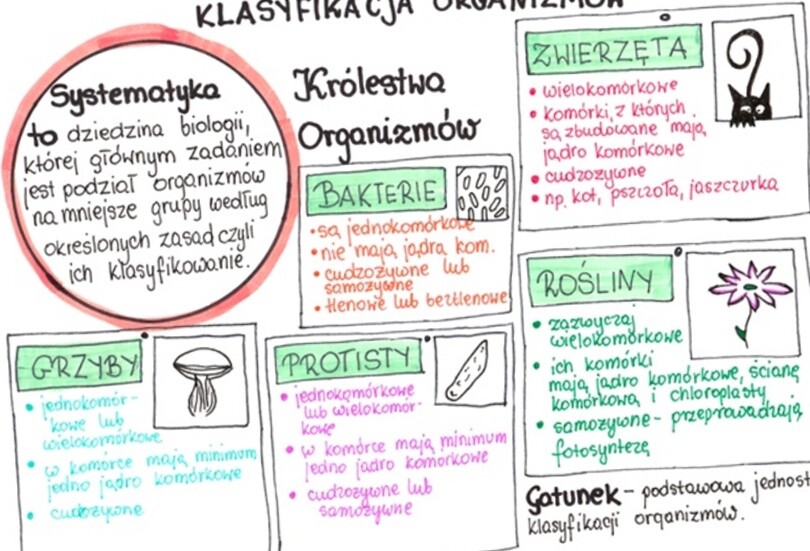 KLASYFIKACJA ORGANIZMÓW
Systematyka
to dziedzina biologii,
której głównym zadaniem
jest podział organizmów
na mniejsze grupy według
określonych zasad czyli
ich klasyfikowanie.
Królestwa
Organizmów
BAKTERIE
• są jednokomórkowe
• nie mają jądra kom.
• cudzożywne lub
samożywne
• tlenowe lub beztlenowe
ZWIERZĘTA
• wielokomórkowe
• komórki, z których
są zbudowane mają
jądro komórkowe
• cudzożywne
• np. kot, pszczoła, jaszczurka
GRZYBY
• jednokomór-
kowe lub
wielokomórkowe
• w komórce mają minimum
jedno jądro komórkowe
• cudzożywne
PROTISTY
• jednokomórkowe
lub wielokomór-
kowe
• w komórce mają minimum
jedno jądro komórkowe
• cudzożywne lub
samożywne
ROŚLINY
• zazwyczaj
wielokomórkowe
• ich komórki
mają jądro komórkowe, ścianę
komórkową i chloroplasty
• samożywne - przeprowadzają
fotosyntezę
Gatunek - podstawowa jednost
klasyfikacji organizmów.